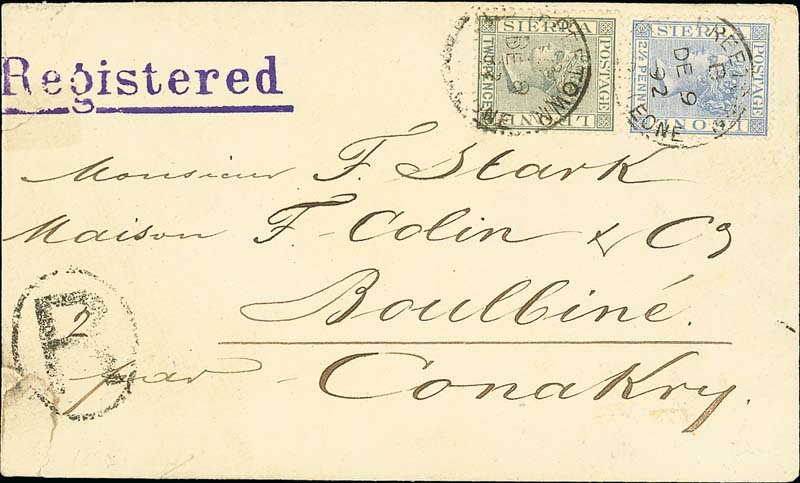 Registered
SIERRA LEONE
POSTAGE
TWO PENCE
FREETOWN
DE 9
SIERRA LEONE
POSTAGE
2½ PENNY
B
DE 9
92
LEONE
Monsieur F. Stark
Maison F. Colin & Co
Boulbiné.
par Conakry.
R
2